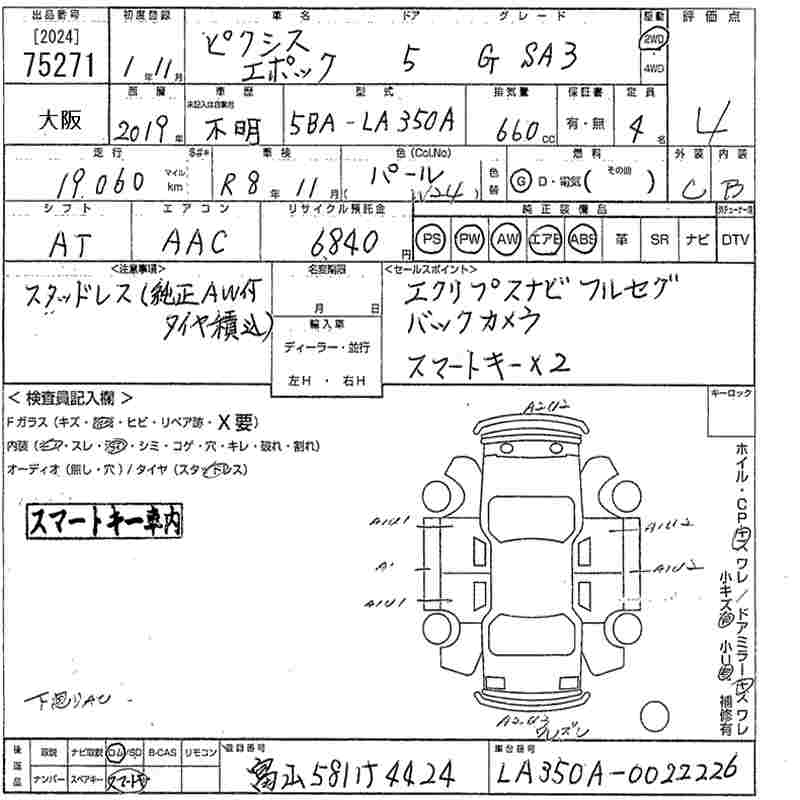 出品番号 初度登録 車名 ドア グレード 駆動 評価点
[2024] 75271 1年11月 ピクシス エポック 5 G SA3 2WD 4WD
車歴 型式 排気量 保証書 定員
未記入は自家用
大阪 2019年 不明 5BA-LA350A 660cc 有・無 4名 4
走行 車検 色(Col.No) 色替 燃料 外装 内装
19,060 マイル km R8年11月 パール (W24) G D・電気( その他 ) C B
シフト エアコン リサイクル預託金 純正装備品
AT AAC 6840円 PS PW AW エアB ABS 革 SR ナビ DTV
<注意事項> 名変期限 <セールスポイント>
スタッドレス(純正AW付 月 日 エクリプスナビ フルセグ
タイヤ積込) 輸入車 バックカメラ
ディーラー・並行
左H・右H スマートキー×2
<検査員記入欄> キーロック
Fガラス(キズ・ ・ヒビ・リペア跡・X要)
内装(キズ・スレ・ ・シミ・コゲ・穴・キレ・破れ・割れ)
オーディオ(無し・穴)/タイヤ(スタッドレス)
スマートキー車内
A2U2
A1U1 A1U2
A1 A1U2
A1U1
A2U3
ズレ
ホイル・CPキズ ワレ/ドアミラーキズ ワレ
小キズ有 小U有 補修有
後送品 取説 ナビ取説 ロム/SD B-CAS リモコン 登録番号 車台番号
ナンバー スペアキー スマートキー 富山581け4424 LA350A-0022226